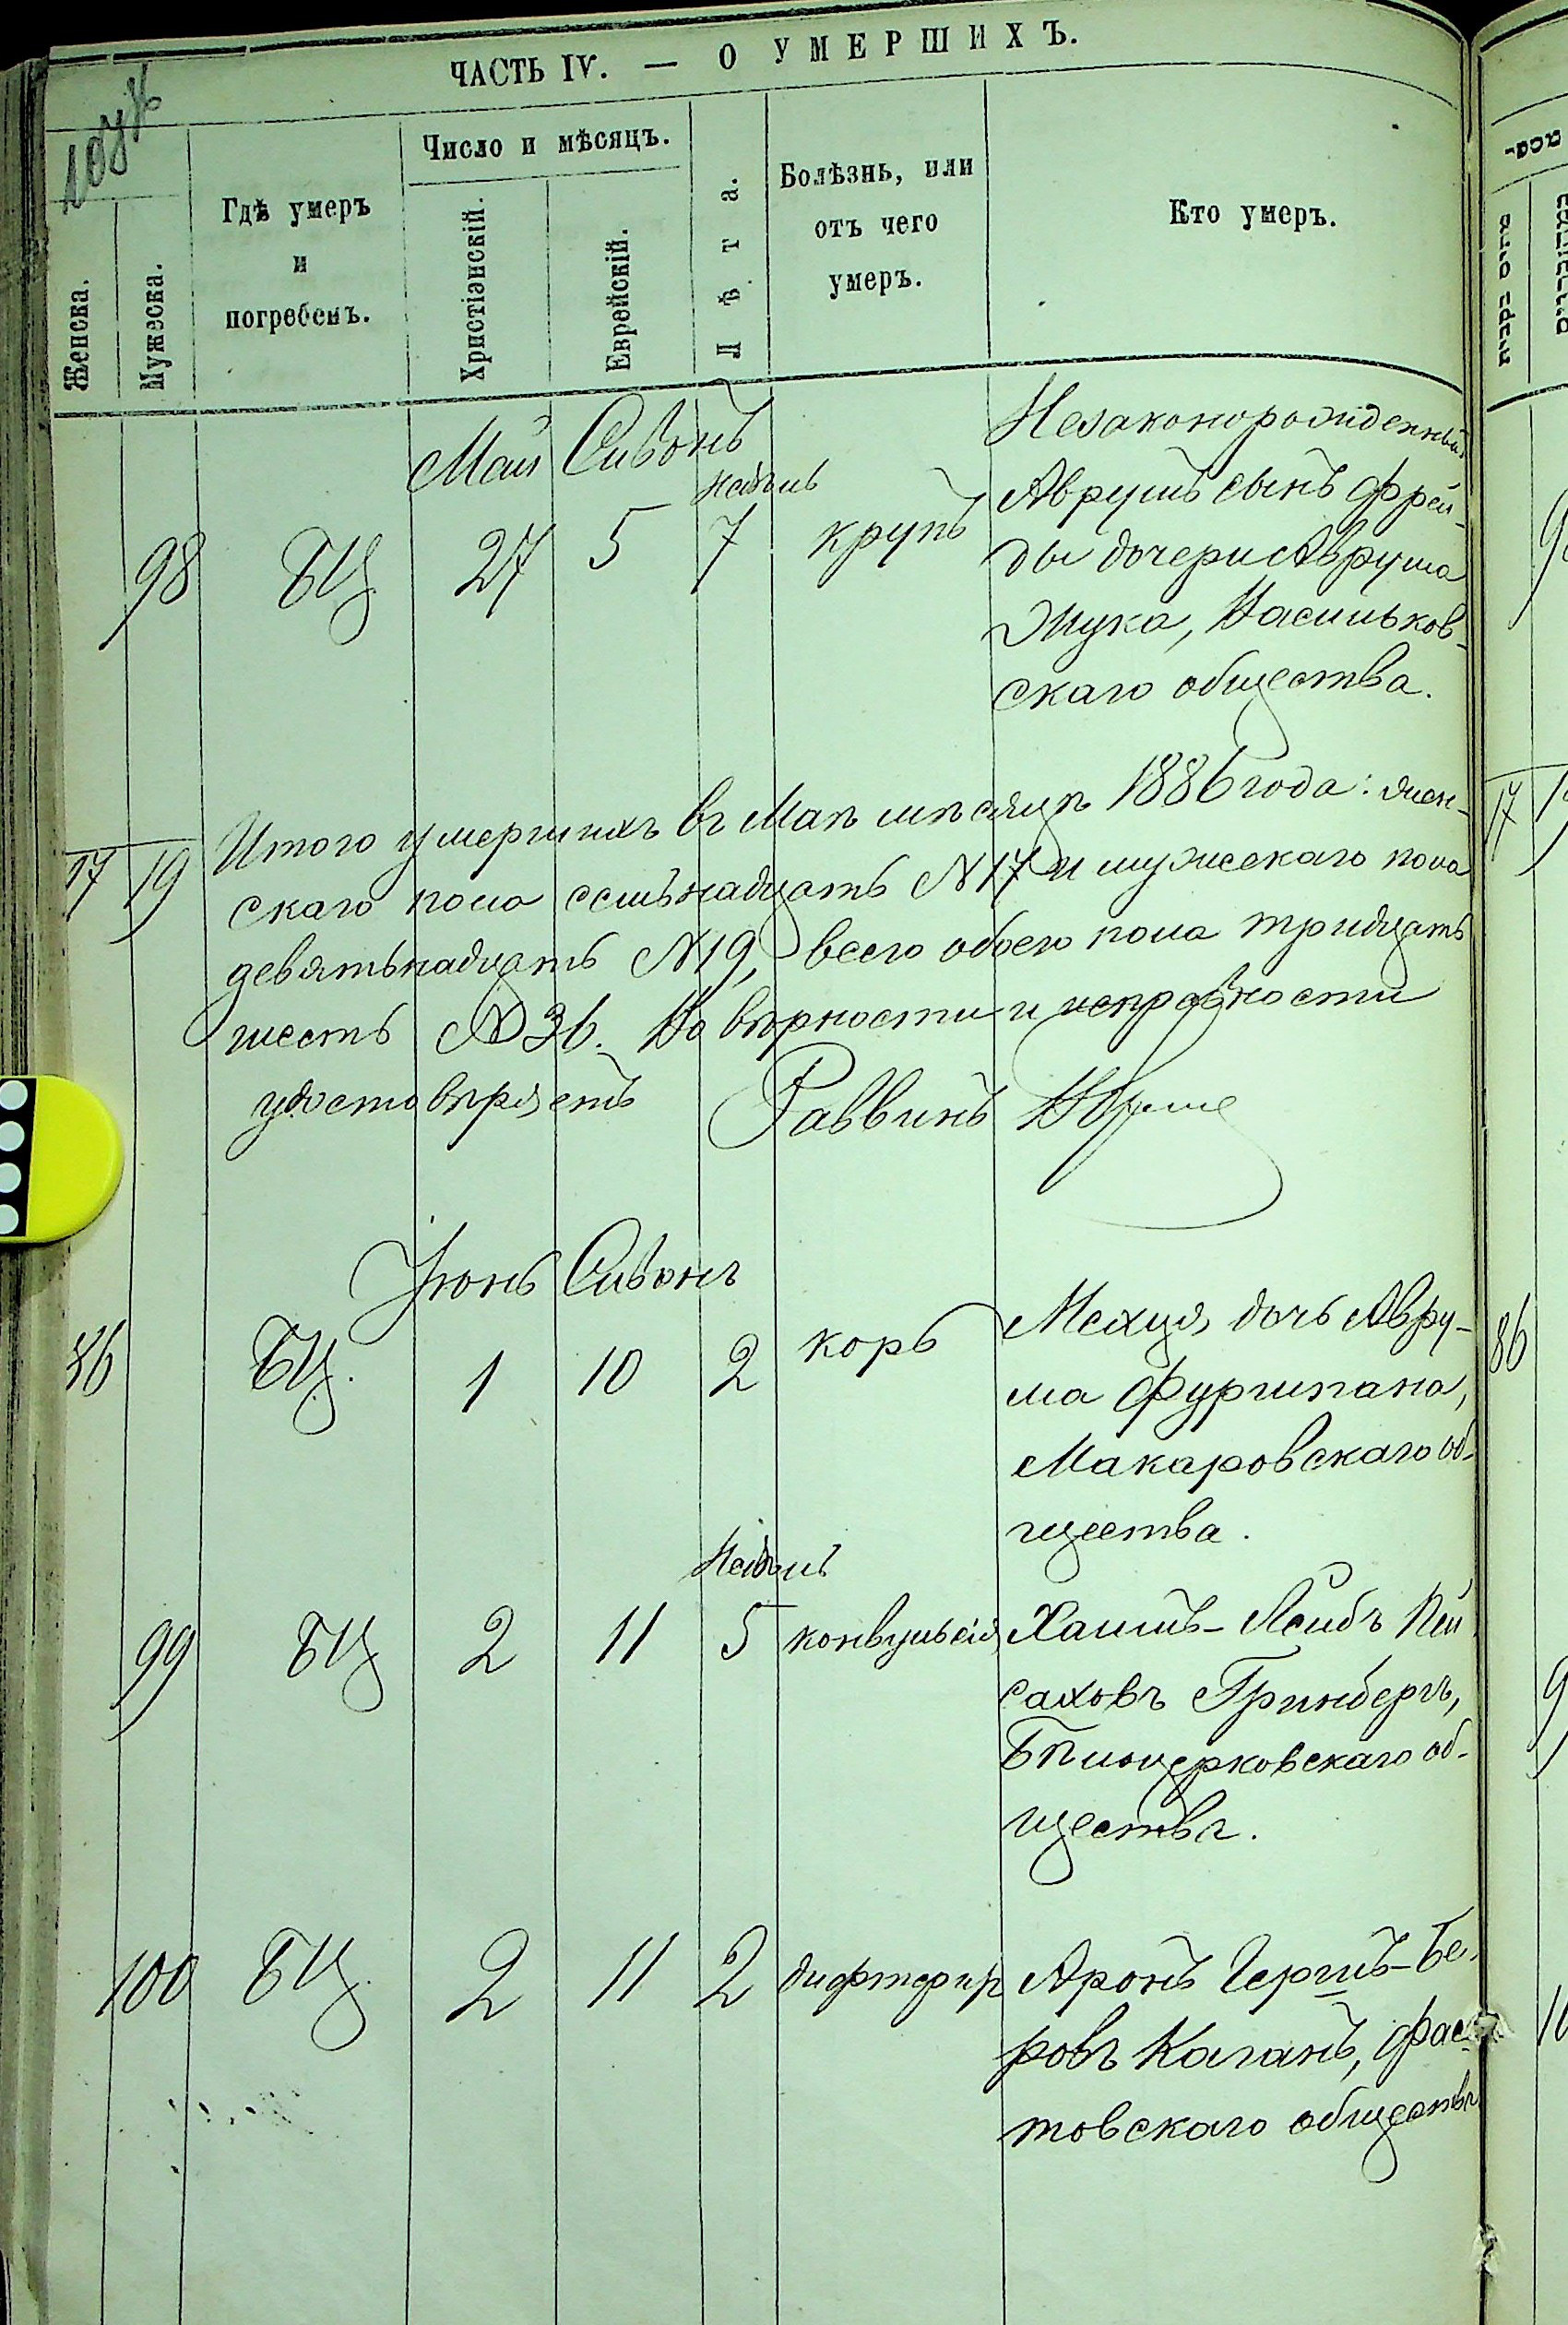 ЧАСТЬ IV. — О УМЕРШИХЪ.
Женска.
Мужеска.
Гдѣ умеръ
и
погребенъ.
Число и мѣсяцъ.
Христіанскій.
Еврейскій.
Лѣта.
Болѣзнь, или
отъ чего
умеръ.
Кто умеръ.
Май Сивонъ
98 БЦ 27 5 7 недѣль крупъ
Незаконорожденный
Аврумъ сынъ Фрей-
ды дочери Аврума
Жука, Васильков-
скаго общества.
17 19 Итого умершихъ въ Маѣ мѣсяцѣ 1886 года: жен-
скаго пола семьнадцать N 17 и мужескаго пола
девятьнадцать N 19, всего обоего пола тридцать
шесть N 36. Въ вѣрности и исправности
удостовѣряетъ Раввинъ
Іюнь Сивонъ
86 БЦ. 1 10 2 корь
дочь Авру-
ма Фурмана,
Макаровскаго об-
щества.
99 БЦ 2 11 5 Недѣль конвульсія
Хаимъ-Лейбъ Пей
саховъ Гринбергъ,
Бѣлоцерковскаго об-
щества.
100 БЦ. 2 11 2 дифтерир
Аронъ Гершъ-Бе-
ровъ Каганъ, Фас-
товскаго общества